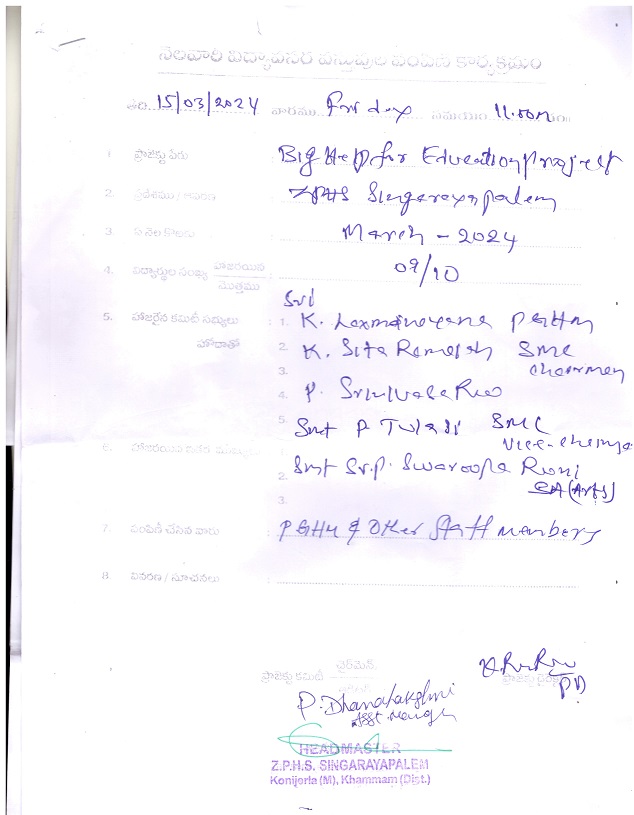 నెలవారీ విద్యావసర వస్తువుల పంపిణీ కార్యక్రమం
తేది 15/03/2024 వారము Friday సమయం 11.00
1 ప్రాజెక్టు పేరు : Big Help for Education project
2. ప్రదేశము / : ZPHS Singarayapalem
3. ఏ నెల కొరకు : March - 2024
4. విద్యార్థుల సంఖ్య హాజరయిన / మొత్తము : 09/10
Sri
5. హాజరైన కమిటీ సభ్యులు : 1. K. Laxminarayana PGHM
హోదాతో 2. K. Sita Ramaiah SMC
3. Chairman
4. P. Srinivasa Rao
5. Smt P Tulasi SMC
Vice-
6. హాజరయిన ఇతర
2. Smt Sr.P. Swaroopa Rani
3. SA (Arts)
7. పంపిణీ చేసిన వారు : PGHM & Other Staff members
8. వివరణ / సూచనలు :
ఛైర్మెన్
ప్రాజెక్టు కమిటీ
ప్రాజెక్టు
PD
P. Dhanalakshmi
Asst.
HEADMASTER
Z.P.H.S. SINGARAYAPALEM
Konijerla (M), Khammam (Dist.)